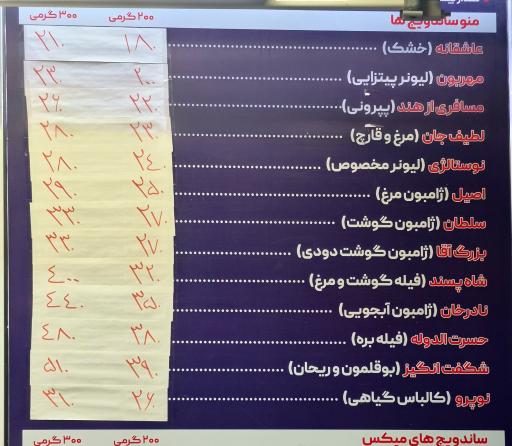 منو ساندویچ ها ۲۰۰ گرمی ۳۰۰ گرمی
عاشقانه (خشک) ۱۸۰ ۲۱۰
مهربون (لیونر پیتزایی) ۲۰۰ ۲۳۰
مسافری از هند (پپرونی) ۲۲۰ ۲۶۰
لطیف جان (مرغ و قارچ) ۲۳۰ ۲۸۰
نوستالژی (لیونر مخصوص) ۲۴۰ ۲۸۰
اصیل (ژامبون مرغ) ۲۵۰ ۲۹۰
سلطان (ژامبون گوشت) ۲۷۰ ۳۳۰
بزرگ آقا (ژامبون گوشت دودی) ۲۷۰ ۳۳۰
شاه پسند (فیله گوشت و مرغ) ۳۲۰ ۴۰۰
نادرخان (ژامبون آبجویی) ۳۵۰ ۴۴۰
حسرت الدوله (فیله بره) ۳۸۰ ۴۸۰
شگفت انگیز (بوقلمون و ریحان) ۳۹۰ ۵۱۰
نوپرو (کالباس گیاهی) ۲۶۰ ۳۱۰
ساندویچ های میکس ۲۰۰ گرمی ۳۰۰ گرمی